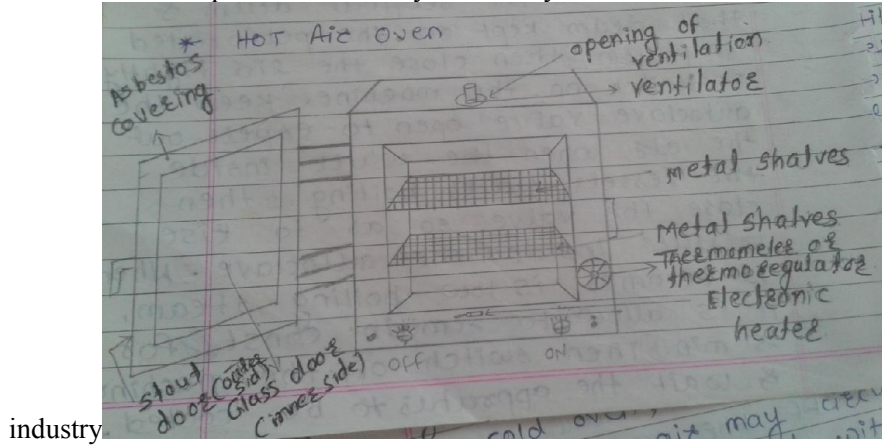 * HOT Air Oven
Asbestos
covering
opening of
ventilation
ventilator
metal shalves
Metal shalves
Thermometer or
thermoregulator
Electronic
heater
OFF
ON
stout
door (outer
sid)
Glass door
(inner side)
cold
air may
industry.